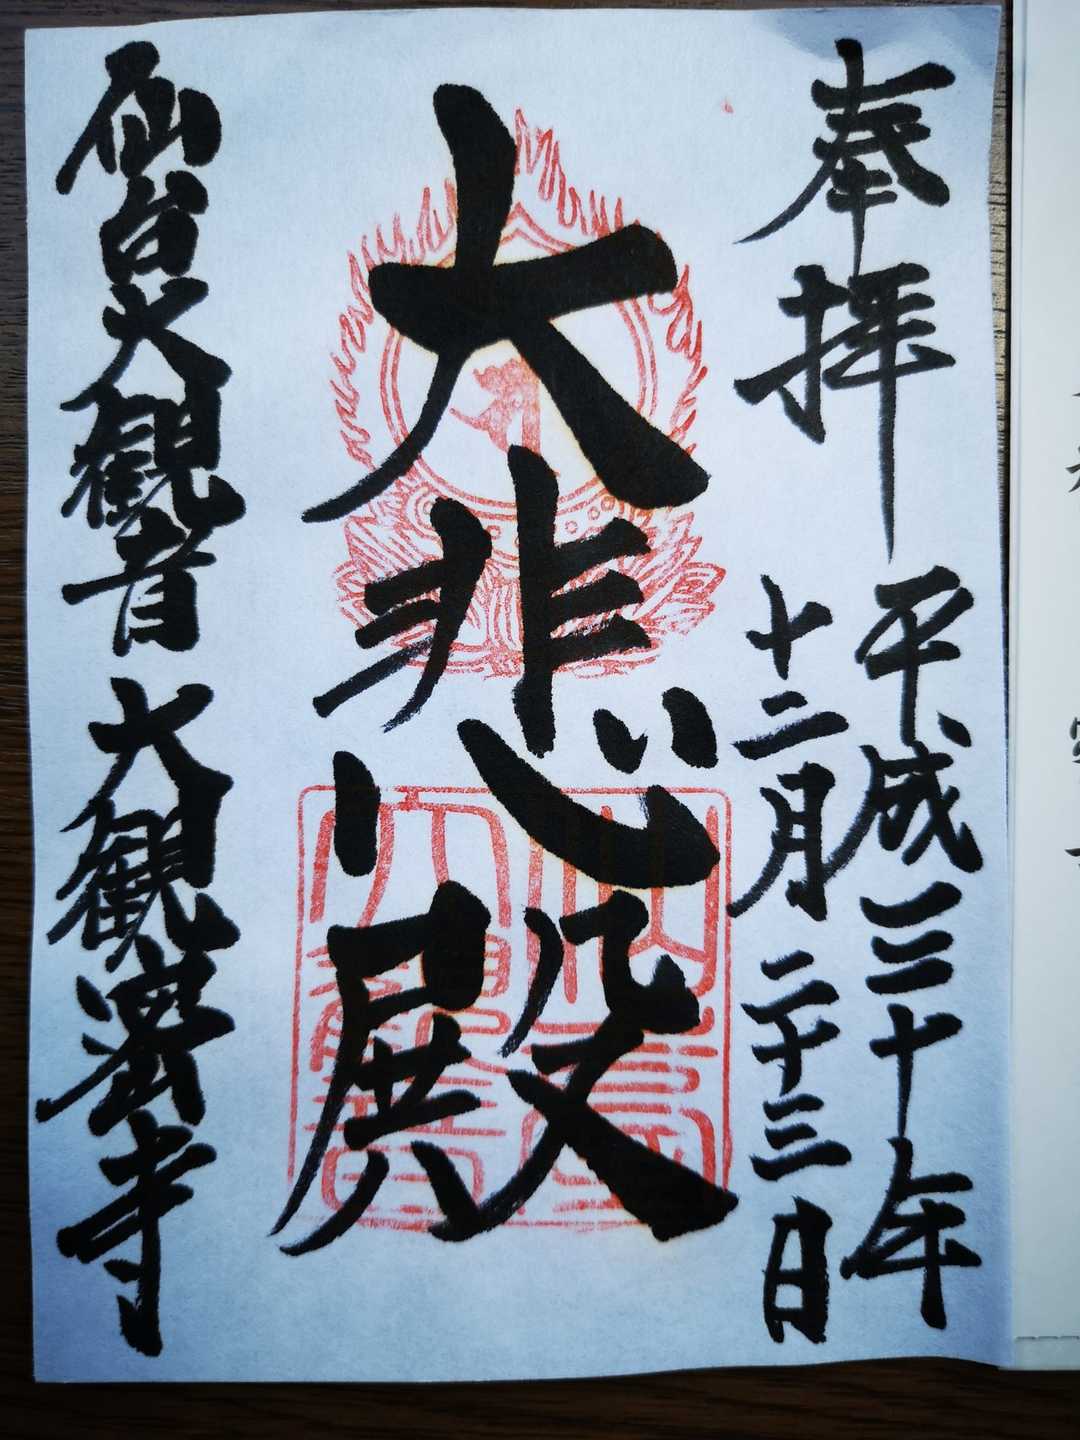 奉拝
平成三十年
十二月二十三日
大悲殿
仙台大観音
仙台大観音
大観密寺